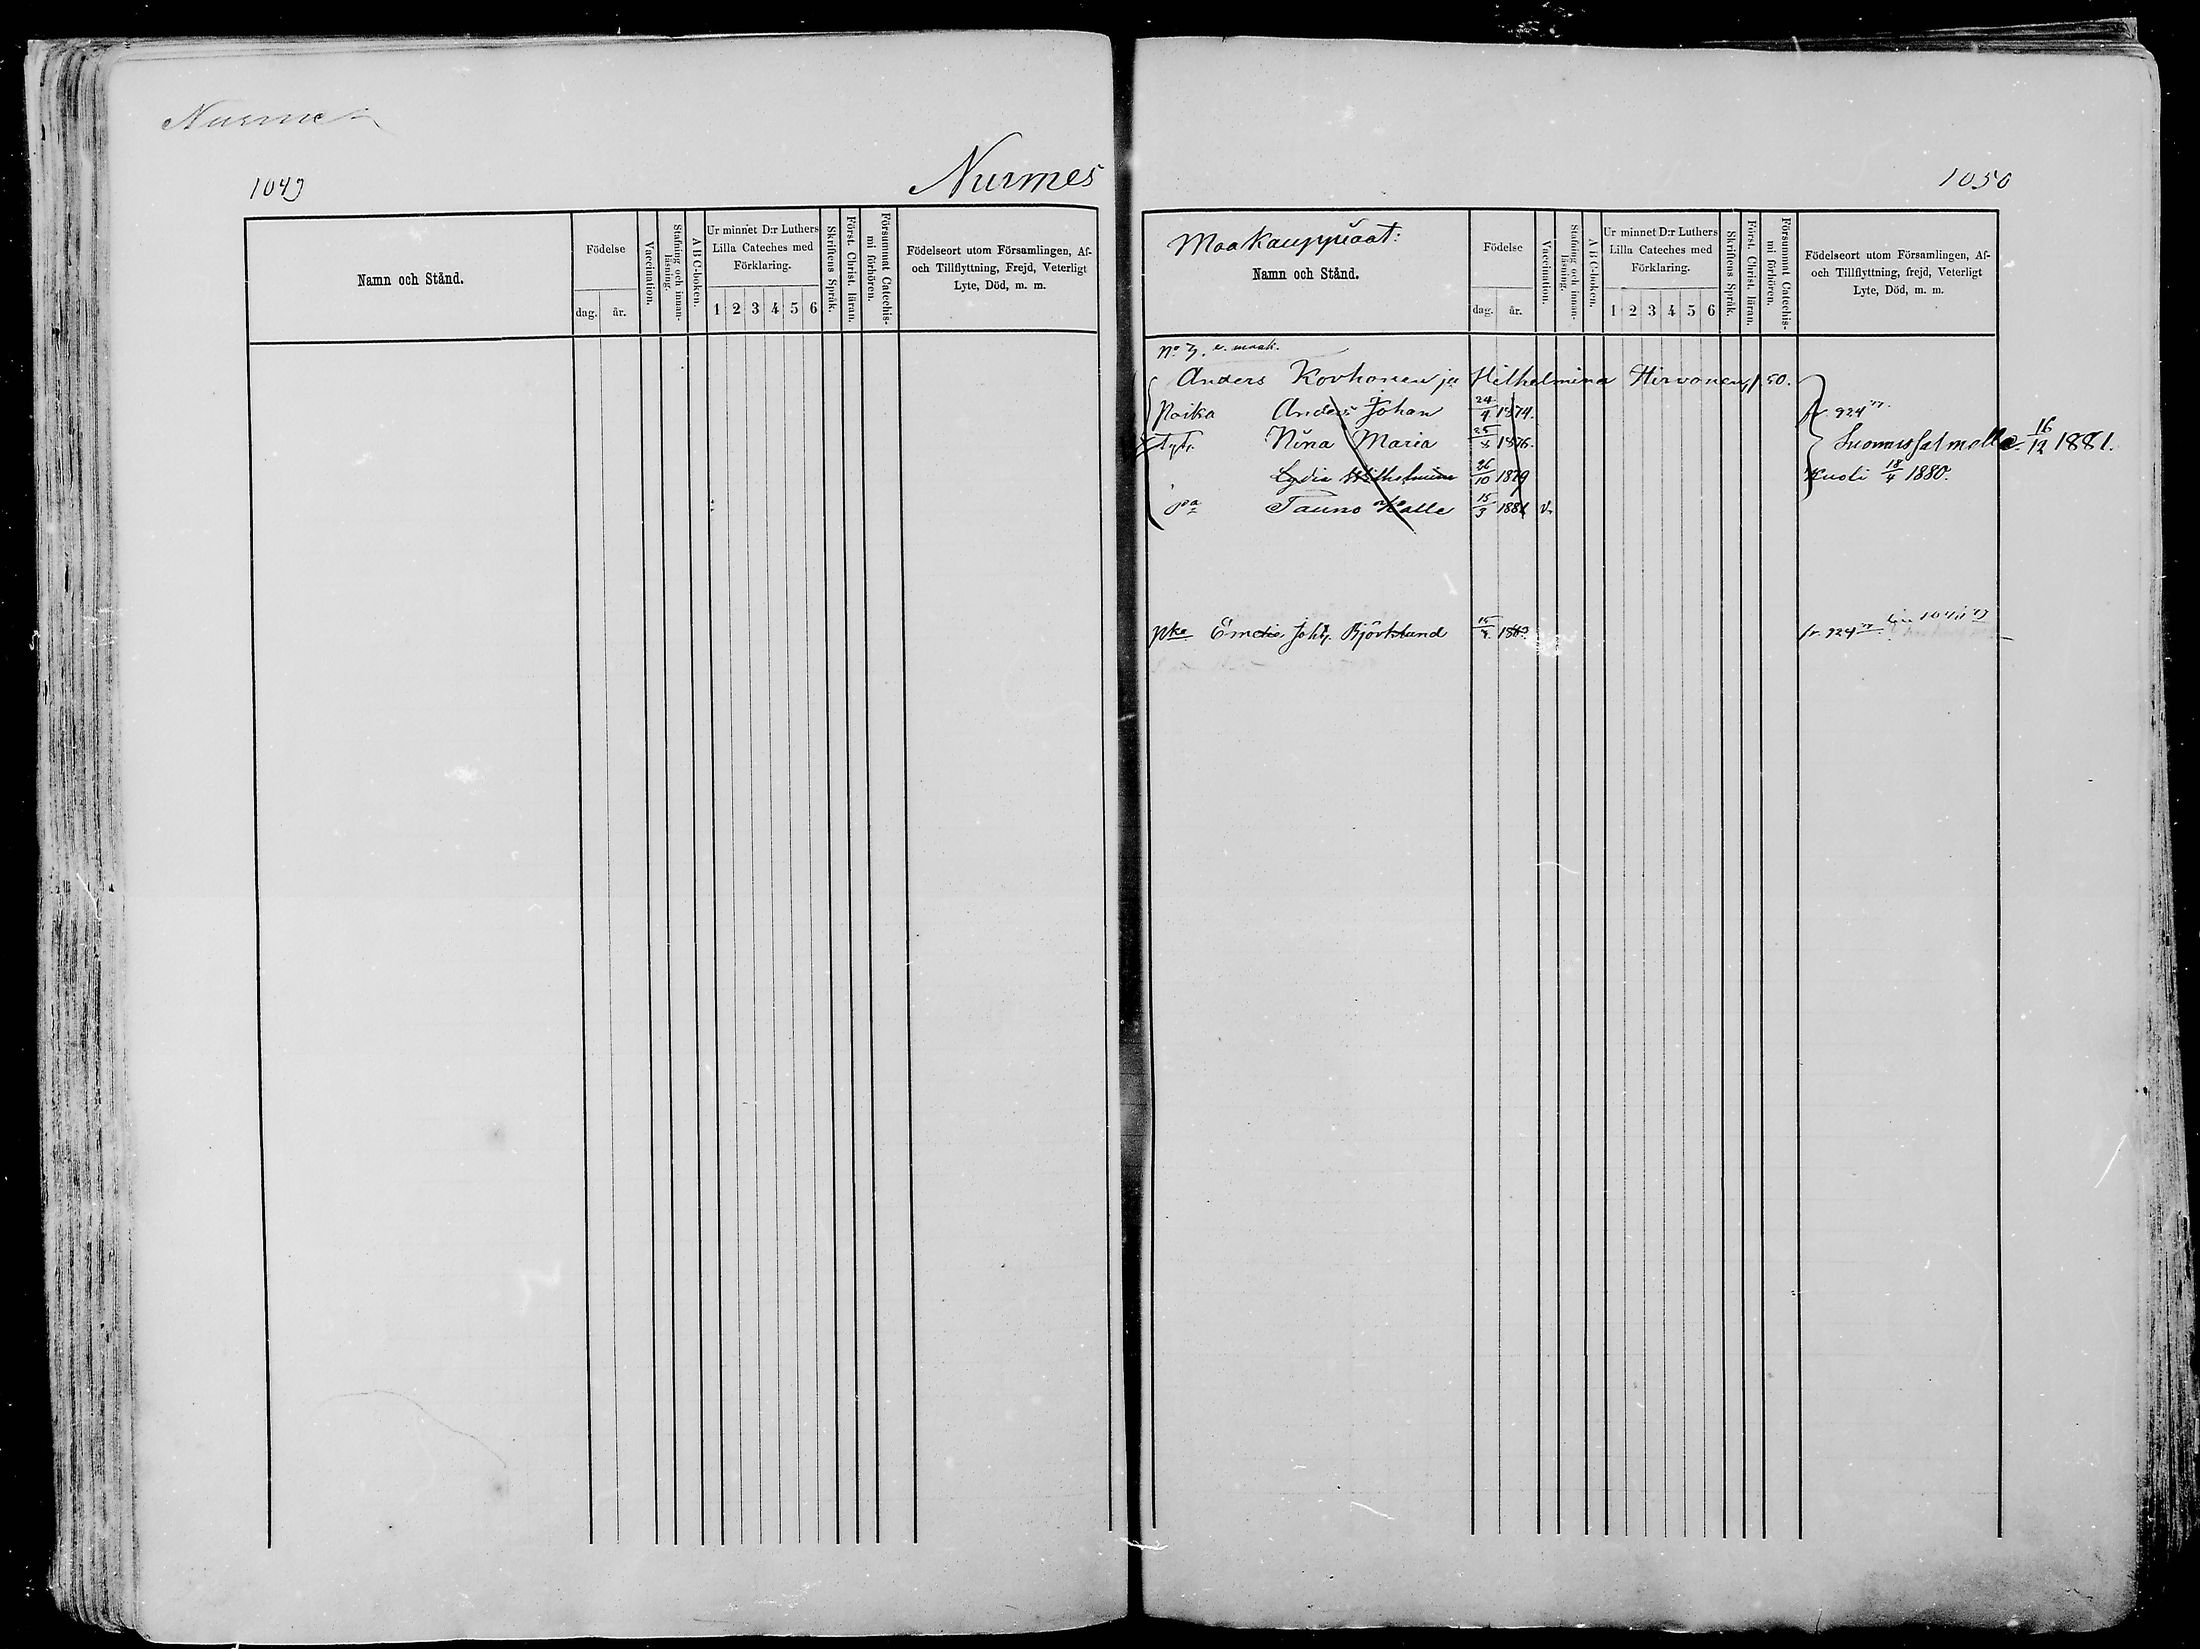 Nurmes
1049
Nurmes
Namn och Stånd.
Födelse
dag. år.
Vaccination.
Stafning och innan-läsning.
A B C-boken.
Ur minnet D:r Luthers
Lilla Cateches med
Förklaring.
1 2 3 4 5 6
Skriftens Språk.
Först. Christ. läran.
Försummat Catechis-mi förhören.
Födelseort utom Församlingen, Af-
och Tillflyttning, Frejd, Veterligt
Lyte, Död, m. m.
1050
Maakauppiaat:
Namn och Stånd.
Födelse
dag. år.
Vaccination.
Stafning och innan-läsning.
A B C-boken.
Ur minnet D:r Luthers
Lilla Cateches med
Förklaring.
1 2 3 4 5 6
Skriftens Språk.
Först. Christ. läran.
Försummat Catechis-mi förhören.
Födelseort utom Församlingen, Af-
och Tillflyttning, frejd, Veterligt
Lyte, Död, m. m.
Anders Korhonen ja Wilhelmina Hirvonen, 50.
Poika Anders Johan 24/4 1874. fr. 924
tyt. Nina Maria 25/8 1876. Suomussalmelle 16/12 1881.
Lydia Wilhelmina 26/10 1879 Kuoli 18/4 1880.
pa Tauno Kalle 15/3 1881 v.
pka Johz. Björklund 15/ fr. 924